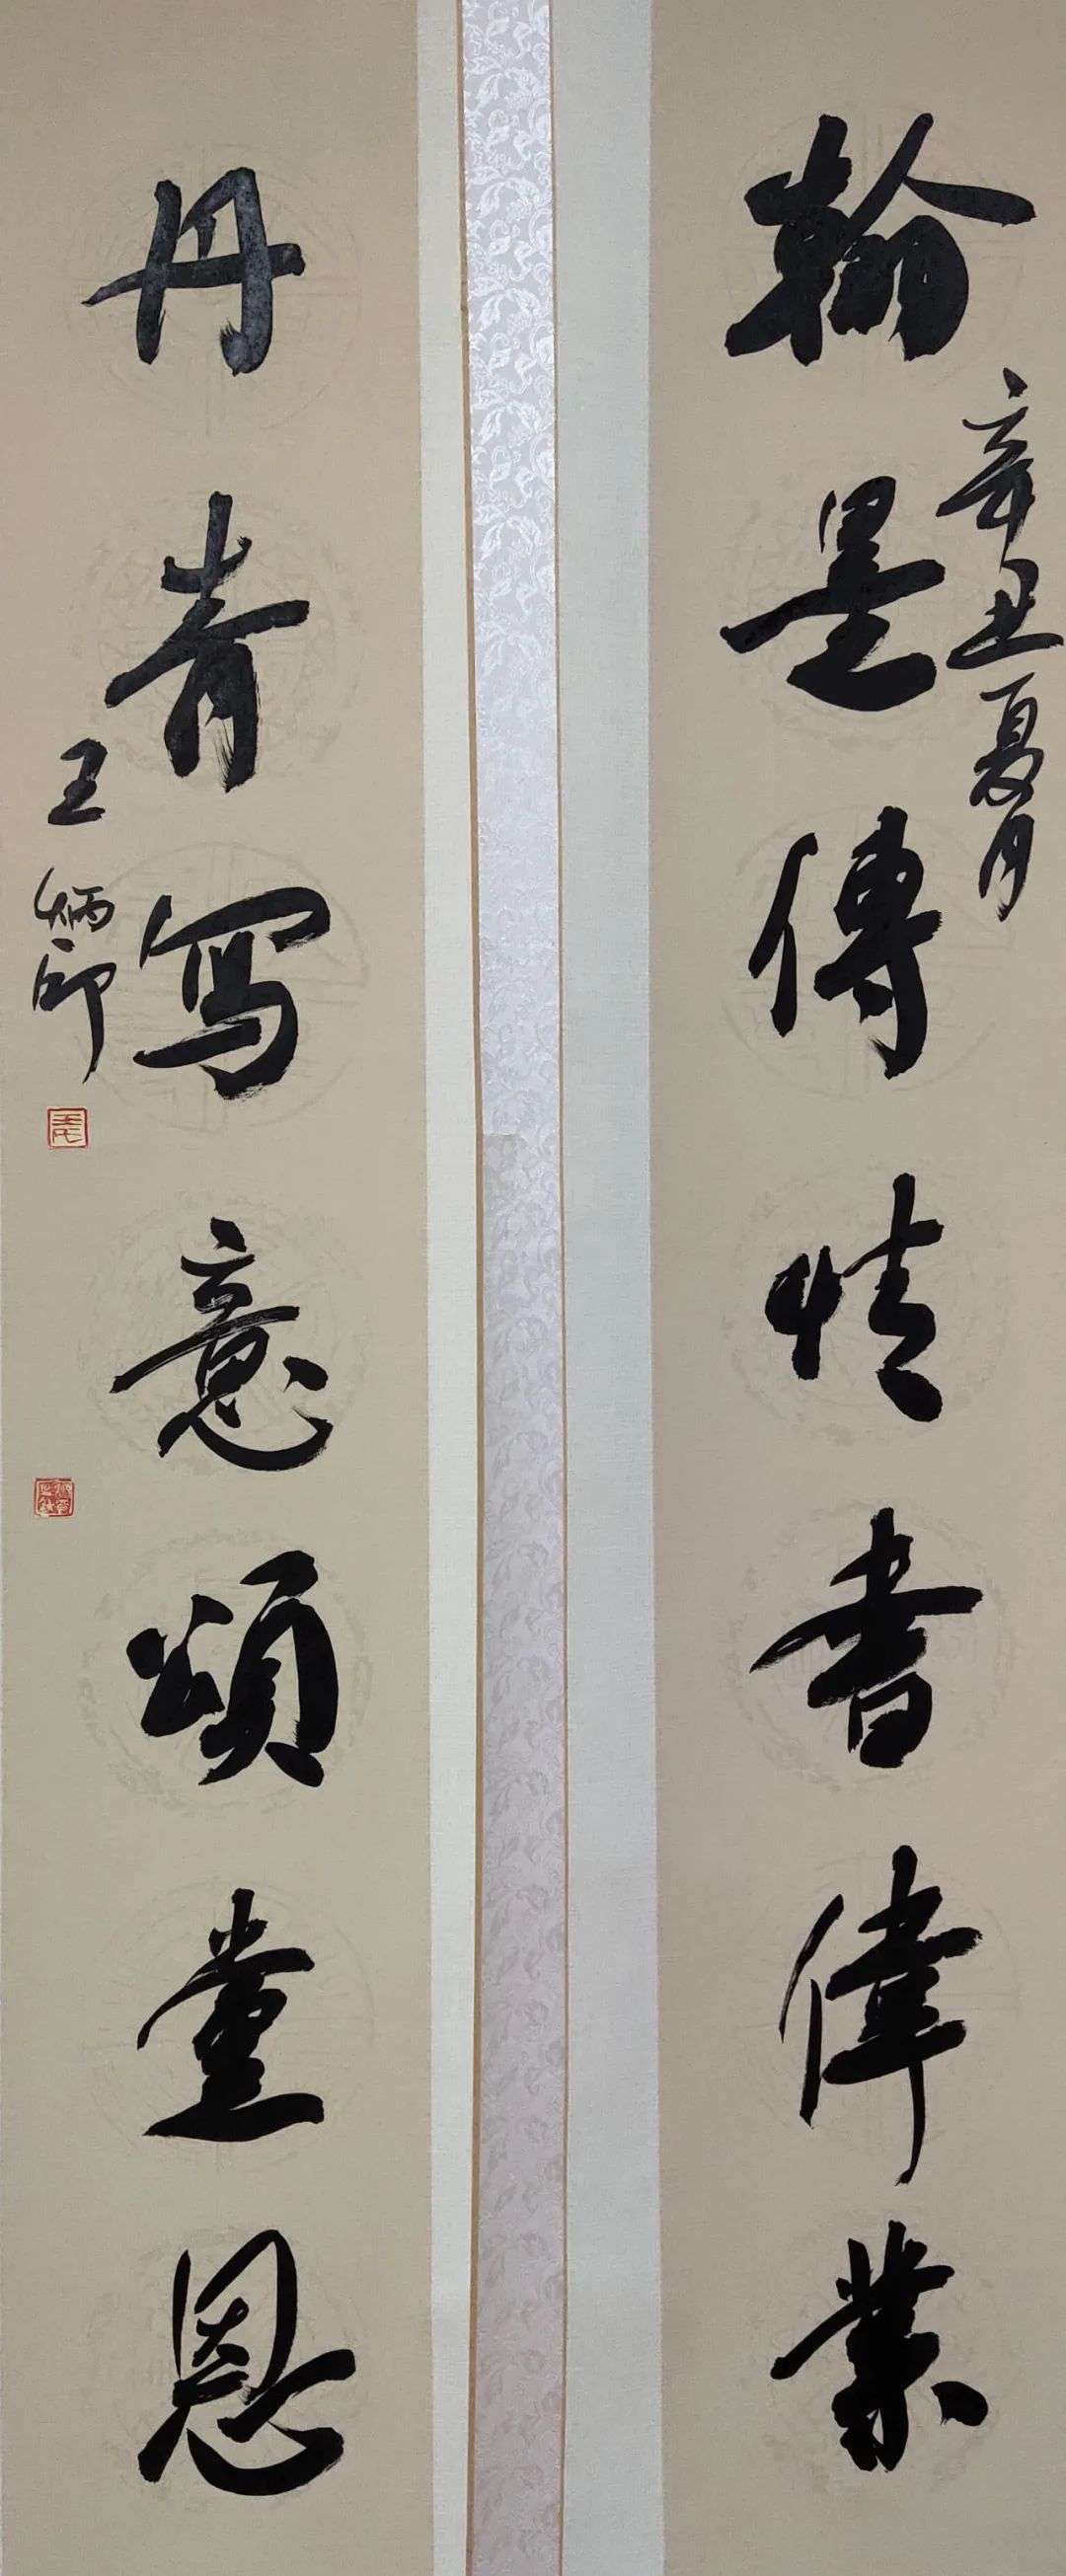 翰墨傳情書偉業
辛丑夏月
丹青寫意頌黨恩
王炳印
王氏